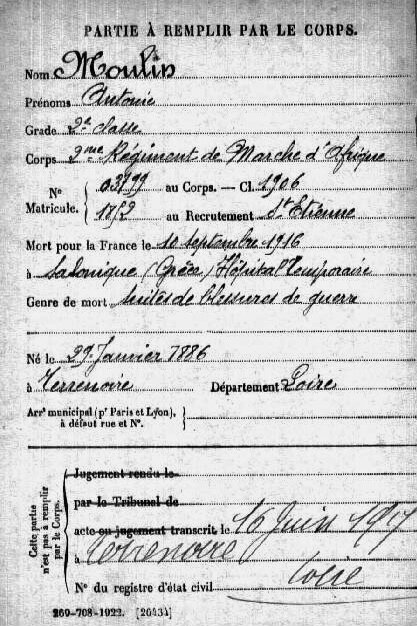 PARTIE À REMPLIR PAR LE CORPS.
Nom Moulin
Prénoms Antoine
Grade 2e classe
Corps 2me Régiment de Marche d'Afrique
No Matricule. 
au Corps. — Cl. 1906
1752 au Recrutement St Etienne
Mort pour la France le 10 septembre 1916
à Salonique (Grèce) Hôpital Temporaire
Genre de mort Suites de blessures de guerre
Né le 29 Janvier 1886
à Terrenoire Département Loire
Arrt municipal (pr Paris et Lyon), à défaut rue et No.
Cette partie n'est pas à remplir par le Corps.
Jugement rendu le
par le Tribunal de
acte ou jugement transcrit le 16 Juin 1917
à Terrenoire
Loire
No du registre d'état civil
269-708-1922. [26434]